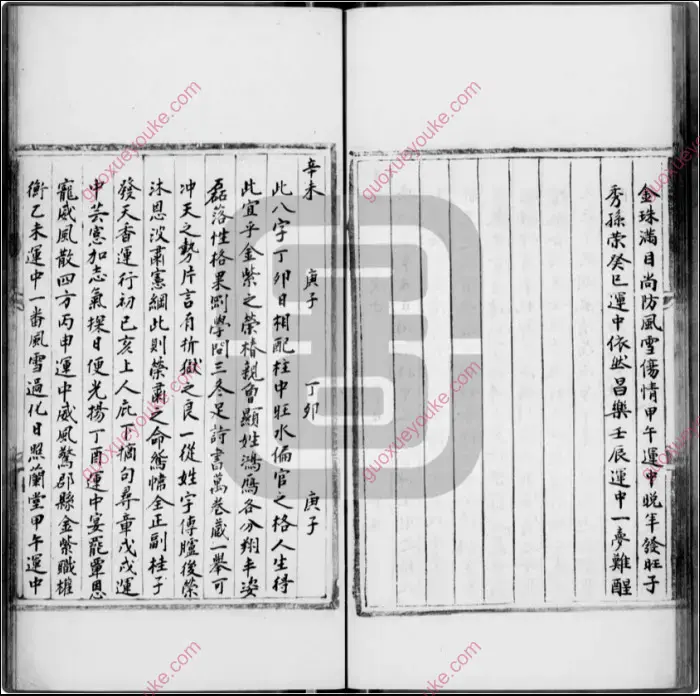 金珠滿目尚防風雪傷情甲午運中晚年發旺子
秀孫榮癸巳運中依然昌樂壬辰運中一夢難醒
辛未 庚子 丁卯 庚子
此八字丁卯日相配柱中旺水偏官之格人生得
此宜乎金紫之榮椿親會顯姓鴻鴈各分翔丰姿
磊落性格果剛學問三冬足詩書萬卷藏一舉可
冲天之勢片言有折獄之良一從姓字傳臚後榮
沐恩波肅憲綱此則榮肅之命鴛幃全正副桂子
發天香運行初己亥上人庇下摘句尋章戊戌運
中芸窓加志氣探日便光揚丁酉運中宴罷覃恩
寵威風散四方丙申運中威風驚郡縣金紫職權
衡乙未運中一番風雪過化日照蘭堂甲午運中
guoxueyouke.com
guoxueyouke.com
guoxueyouke.com
guoxueyouke.com
guoxueyouke.com
guoxueyouke.com